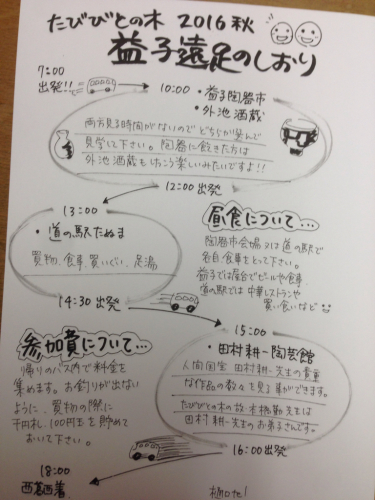 たびびとの木 2016秋
益子遠足のしおり
7:00
出発!!
10:00
・益子陶器市
・外池酒蔵
両方見る時間がないので どちらか選んで
見学して下さい。陶器に飽きた方は
外池酒蔵もけっこう楽しいみたいですよ!!
12:00 出発
13:00
・道の駅たぬま
買物、食事、買いぐい、足湯
14:30 出発
昼食について…
陶器市会場 又は 道の駅で
各自食事をとって下さい。
益子では屋台でビールや食事、
道の駅では 中華レストランや
買い食いなど
15:00
・田村耕一陶芸館
人間国宝 田村耕一先生の貴重
な作品の数々を見る事ができます。
たびびとの木の故・本橋勤先生は
田村耕一先生のお弟子さんです。
16:00出発
参加費について…
帰りのバス内で料金を
集めます。お釣りが出ない
ように、買物の際に
千円札、100円玉を貯めて
おいて下さい。
18:00
西葛西着